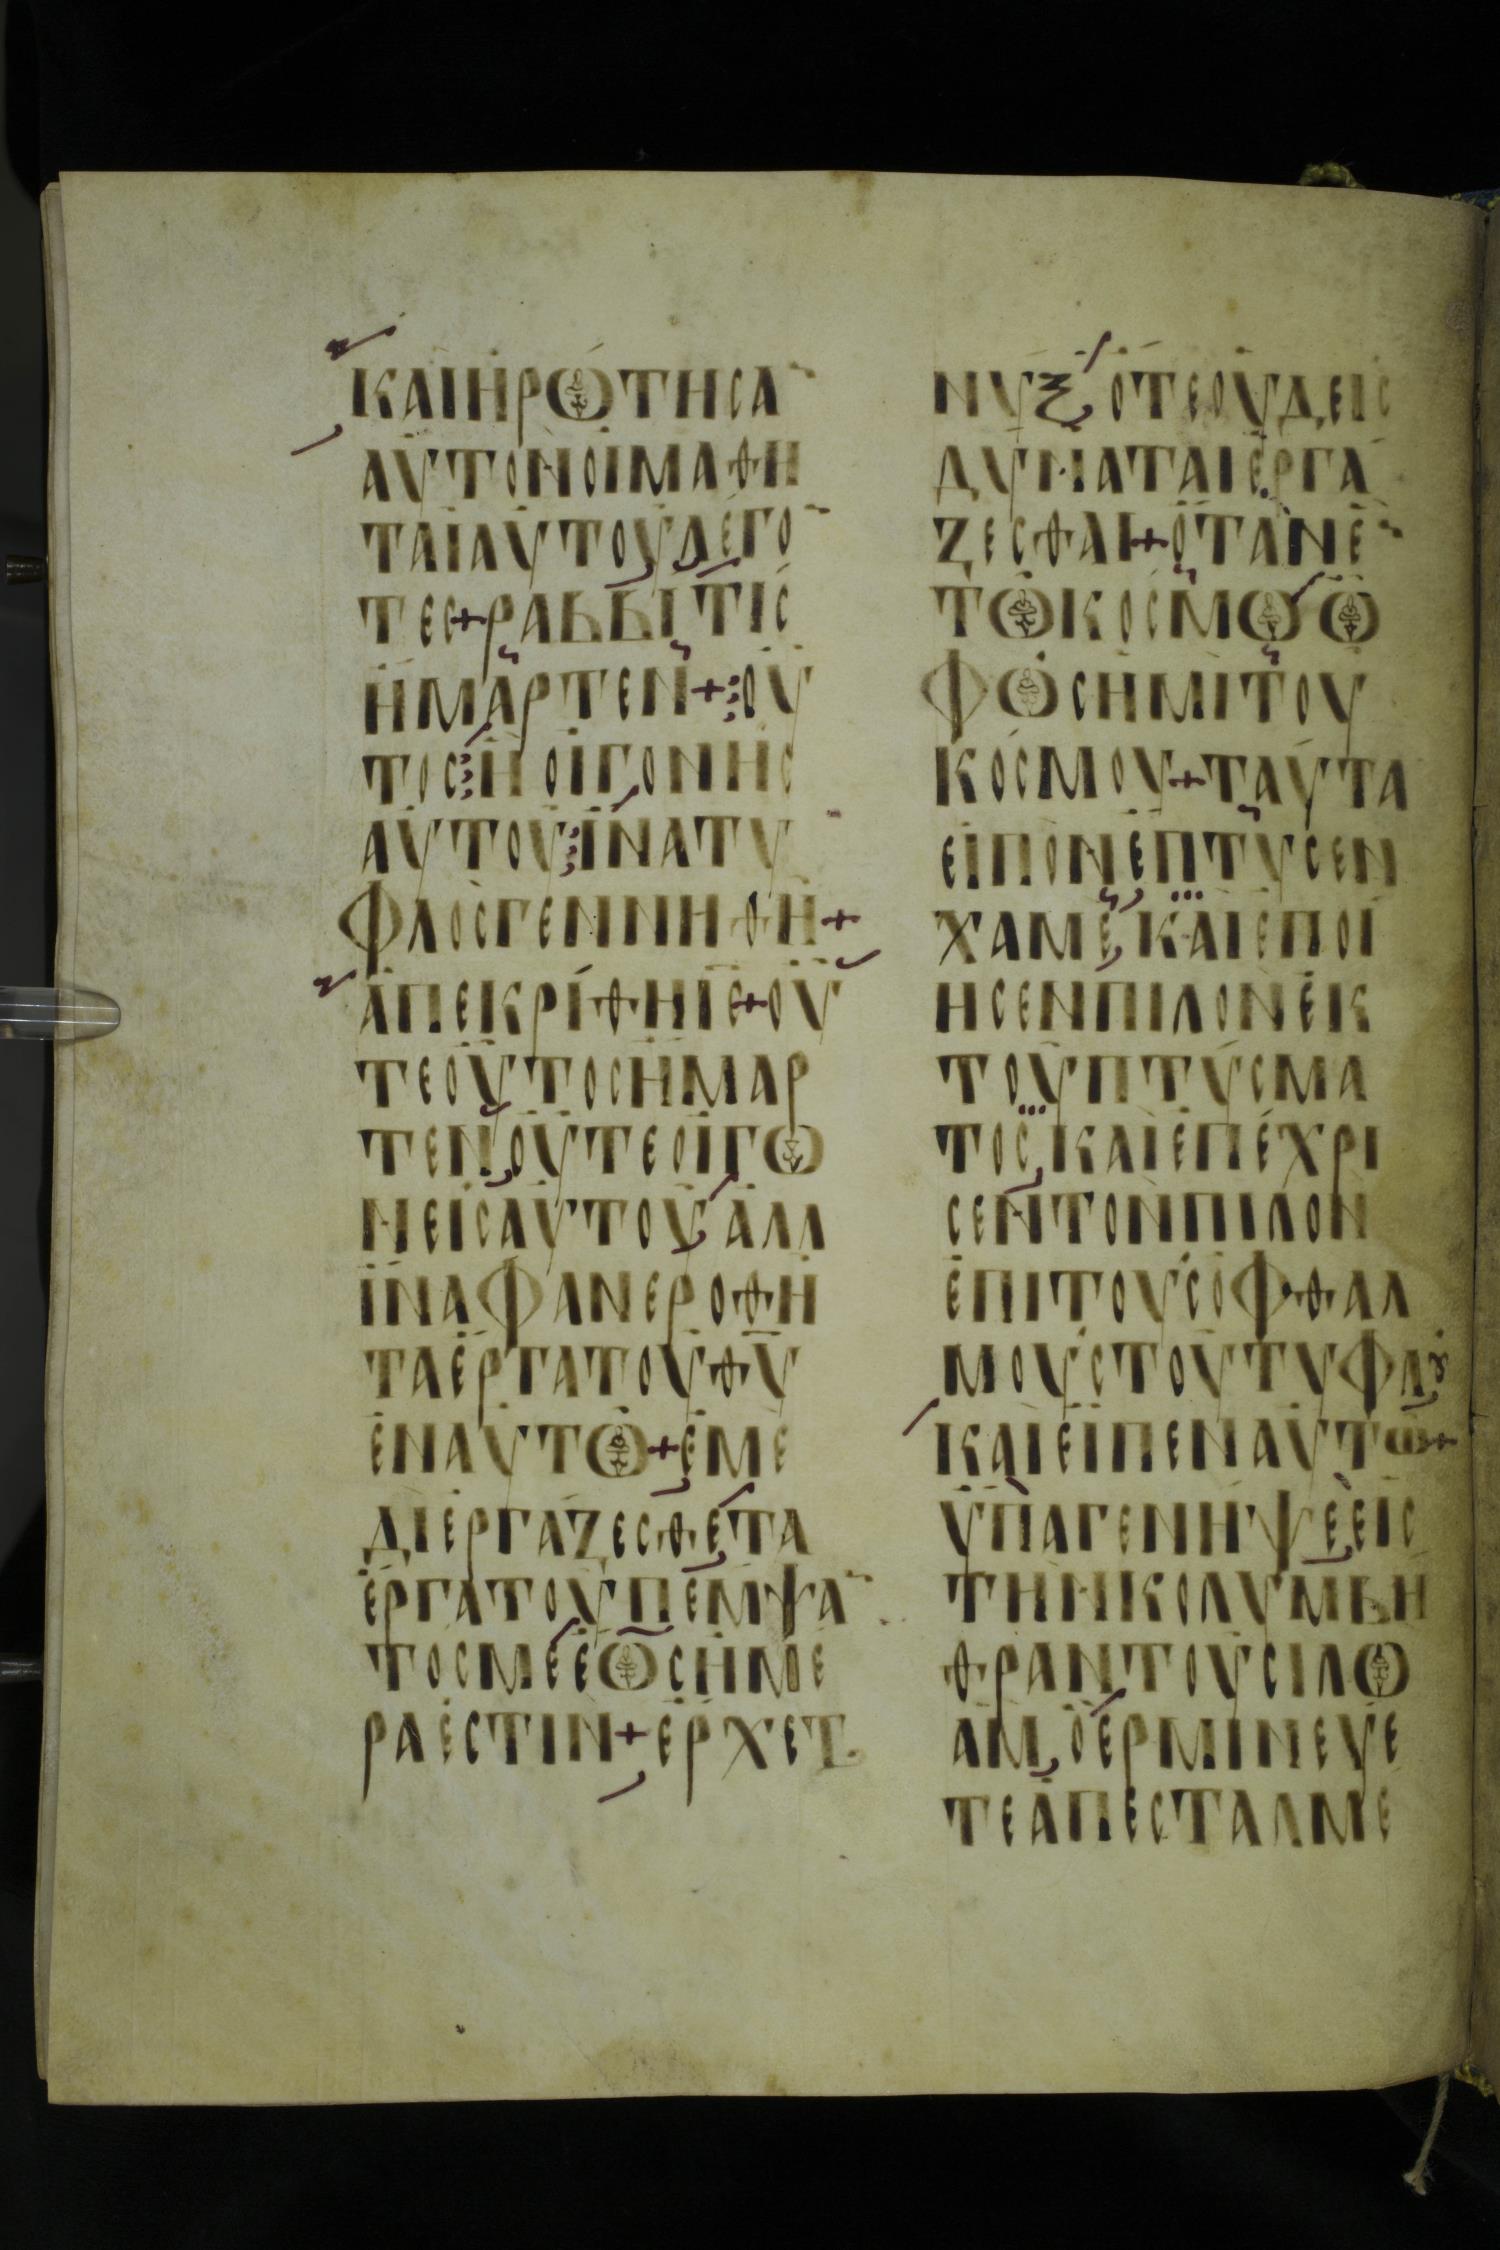 ΚΑΙΗΡΩΤΗϹΑ̅
ΑΥΤΟΝΟΙΜΑΘΗ
ΤΑΙΑΥΤΟΥΛΕΓΟ̅
ΤΕϹ+ΡΑΒΒΙΤΙϹ
ΗΜΑΡΤΕΝ+ΟΥ
ΤΟϹΗΟΙΓΟΝΗϹ
ΑΥΤΟΥΙΝΑΤΥ
ΦΛΟϹΓΕΝΝΗΘΗ+
ΑΠΕΚΡΙΘΗΙϹ+ΟΥ
ΤΕΟΥΤΟϹΗΜΑΡ
ΤΕΝΟΥΤΕΟΙΓΩ
ΝΕΙϹΑΥΤΟΥΑΛΛ
ΙΝΑΦΑΝΕΡΟΘΗ
ΤΑΕΡΓΑΤΟΥΘΥ
ΕΝΑΥΤΩ+ΕΜΕ
ΔΙΕΡΓΑΖΕϹΘΕΤΑ
ΕΡΓΑΤΟΥΠΕΜΨΑ̅
ΤΟϹΜΕΕΩϹΗΜΕ
ΡΑΕϹΤΙΝ+ΕΡΧΕΤ
ΝΥΞΟΤΕΟΥΔΕΙϹ
ΔΥΝΑΤΑΙΕΡΓΑ
ΖΕϹΘΑΙ+ΟΤΑΝΕ̅
ΤΩΚΟϹΜΩΩ
ΦΩϹΗΜΙΤΟΥ
ΚΟϹΜΟΥ+ΤΑΥΤΑ
ΕΙΠΟΝΕΠΤΥϹΕΝ
ΧΑΜΕΚΑΙΕΠΟΙ
ΗϹΕΝΠΙΛΟΝΕΚ
ΤΟΥΠΤΥϹΜΑ
ΤΟϹΚΑΙΕΠΕΧΡΙ
ϹΕΝΤΟΝΠΙΛΟΝ
ΕΠΙΤΟΥϹΟΦΘΑΛ
ΜΟΥϹΤΟΥΤΥΦΛȢ
ΚΑΙΕΙΠΕΝΑΥΤΩ+
ΥΠΑΓΕΝΗΨΕΕΙϹ
ΤΗΝΚΟΛΥΜΒΗ
ΘΡΑΝΤΟΥϹΙΛΩ
ΑΜΟΕΡΜΙΝΕΥΕ
ΤΕΑΠΕϹΤΑΛΜΕ